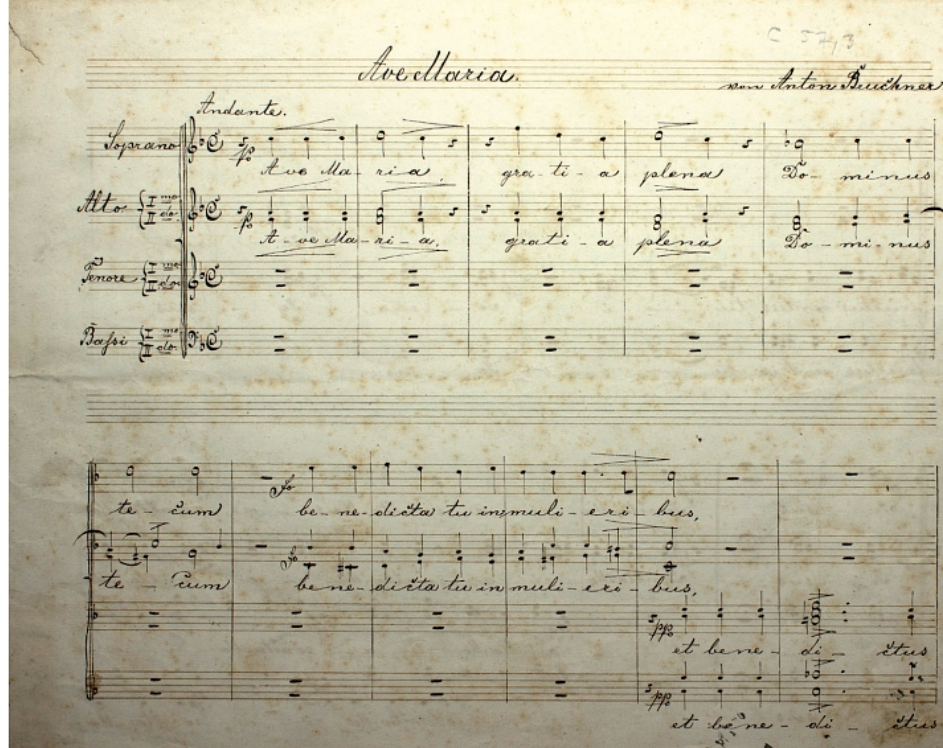 C 57,3
Ave Maria.
von Anton Bruckner
Andante.
Soprano
p
A ve Ma - ri - a, gra - ti - a plena Do - minus
Alto I mo II do.
p
A - ve Ma - ri - a, grati - a plena Do - mi - nus
Tenore I mo II do.
Bassi I mo II do.
te - cum fo be - ne - dicta tu in muli - eri - bus,
fo
te - cum bene - dicta tu in muli - eri - bus,
pp
et bene - di - ctus
pp
et bene - di - ctus